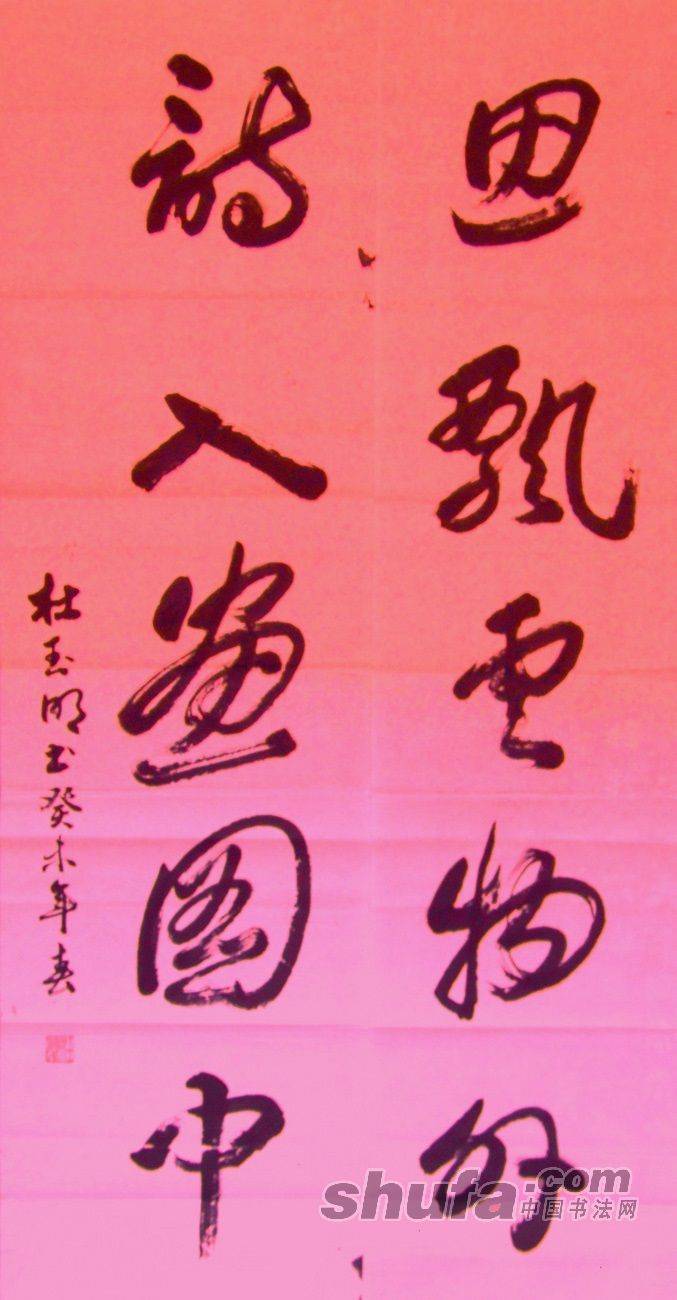 思飘云物外
詩入画图中
杜玉明书癸未年春
shufa.com
中国书法网